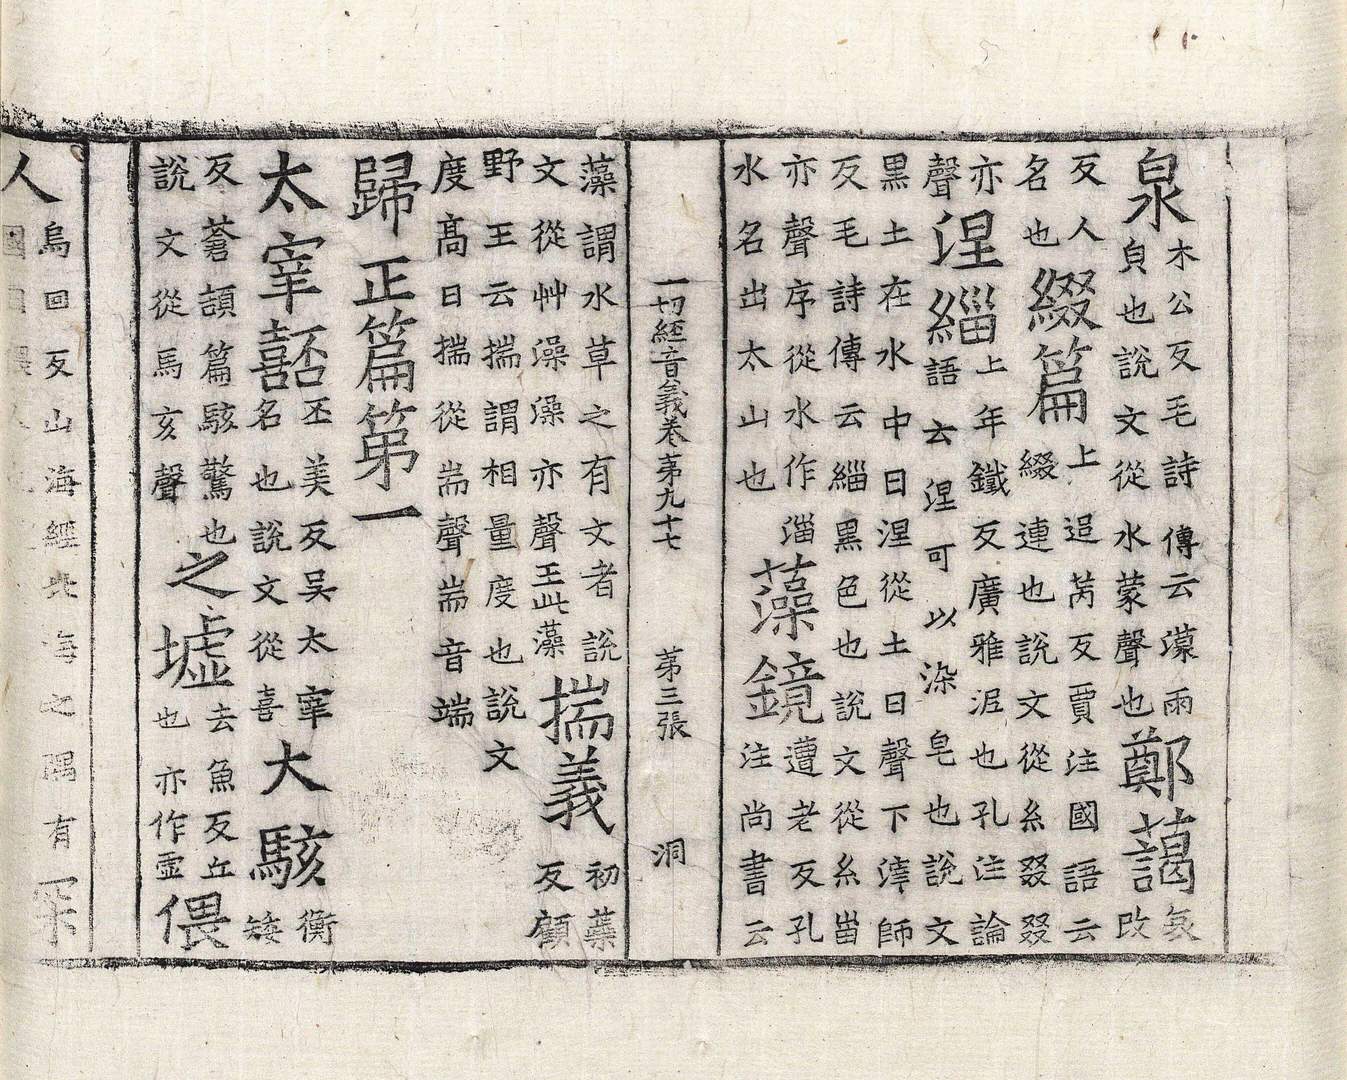 泉木公反毛詩傳云濛雨皃也說文從水蒙聲也鄭藹哀改
反人名也綴篇上追芮反賈注國語云綴連也說文從糸叕叕
亦聲涅緇上年鐵反廣雅泥也孔注論語云涅可以染皂也說文
黑土在水中曰涅從土日聲下滓師反毛詩傳云緇黑色也說文從糸甾
亦聲序從水作淄水名出太山也藻鏡遭老反孔注尚書云
一切經音義卷第九十七 第三張 洞
藻謂水草之有文者說文從艸澡澡亦聲王此藻揣義初蘂反顧
野王云揣謂相量度也說文度高曰揣從耑聲耑音端
歸正篇第一
太宰嚭丕美反吳太宰名也說文從喜大駭衡矮
反蒼頡篇駭驚也說文從馬亥聲之墟去魚反丘也亦作虛偎
人烏回反山海經北海之隅有國